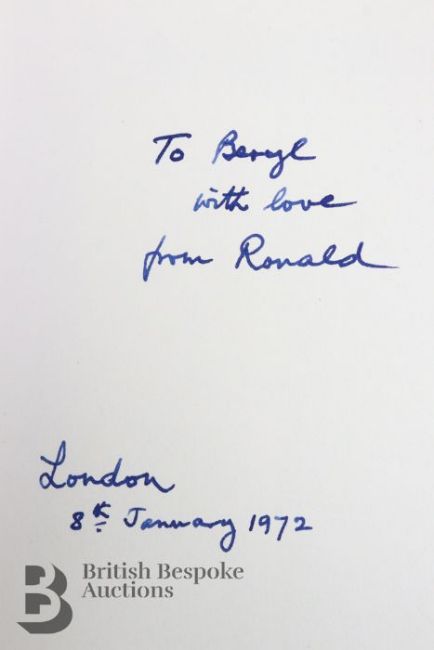 To Beryl
with love
from Ronald
London
8th January 1972
British Bespoke
Auctions